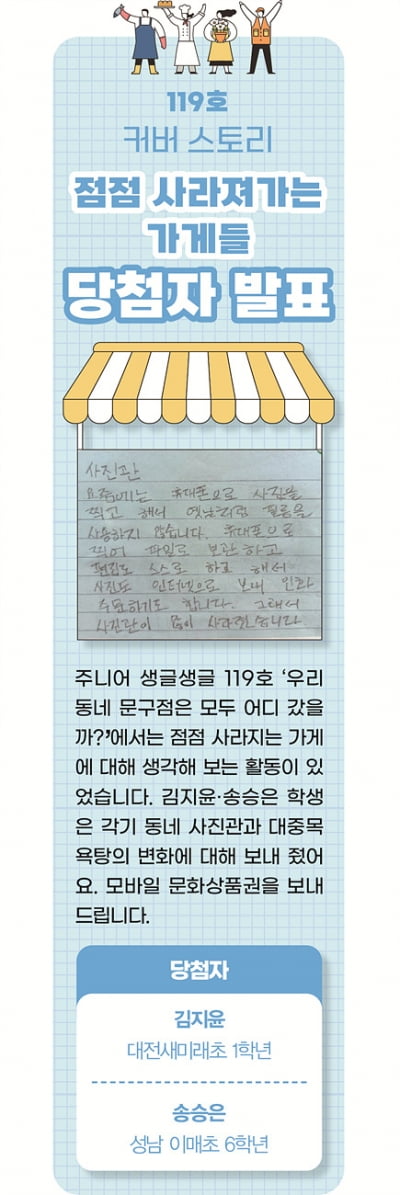 119호
커버 스토리
점점 사라져가는
가게들
당첨자 발표
사진관
요즘에는 휴대폰으로 사진을
찍고 해서 옛날처럼 필름을
사용하지 않습니다. 휴대폰으로
찍어 파일로 보관하고
편집도 스스로 하고 해서
사진도 인터넷으로 보내 인화
주문하기도 합니다. 그래서
사진관이 많이 사라졌습니다
주니어 생글생글 119호 ‘우리
동네 문구점은 모두 어디 갔을
까?’에서는 점점 사라지는 가게
에 대해 생각해 보는 활동이 있
었습니다. 김지윤·송승은 학생
은 각기 동네 사진관과 대중목
욕탕의 변화에 대해 보내 줬어
요. 모바일 문화상품권을 보내
드립니다.
당첨자
김지윤
대전새미래초 1학년
송승은
성남 이매초 6학년